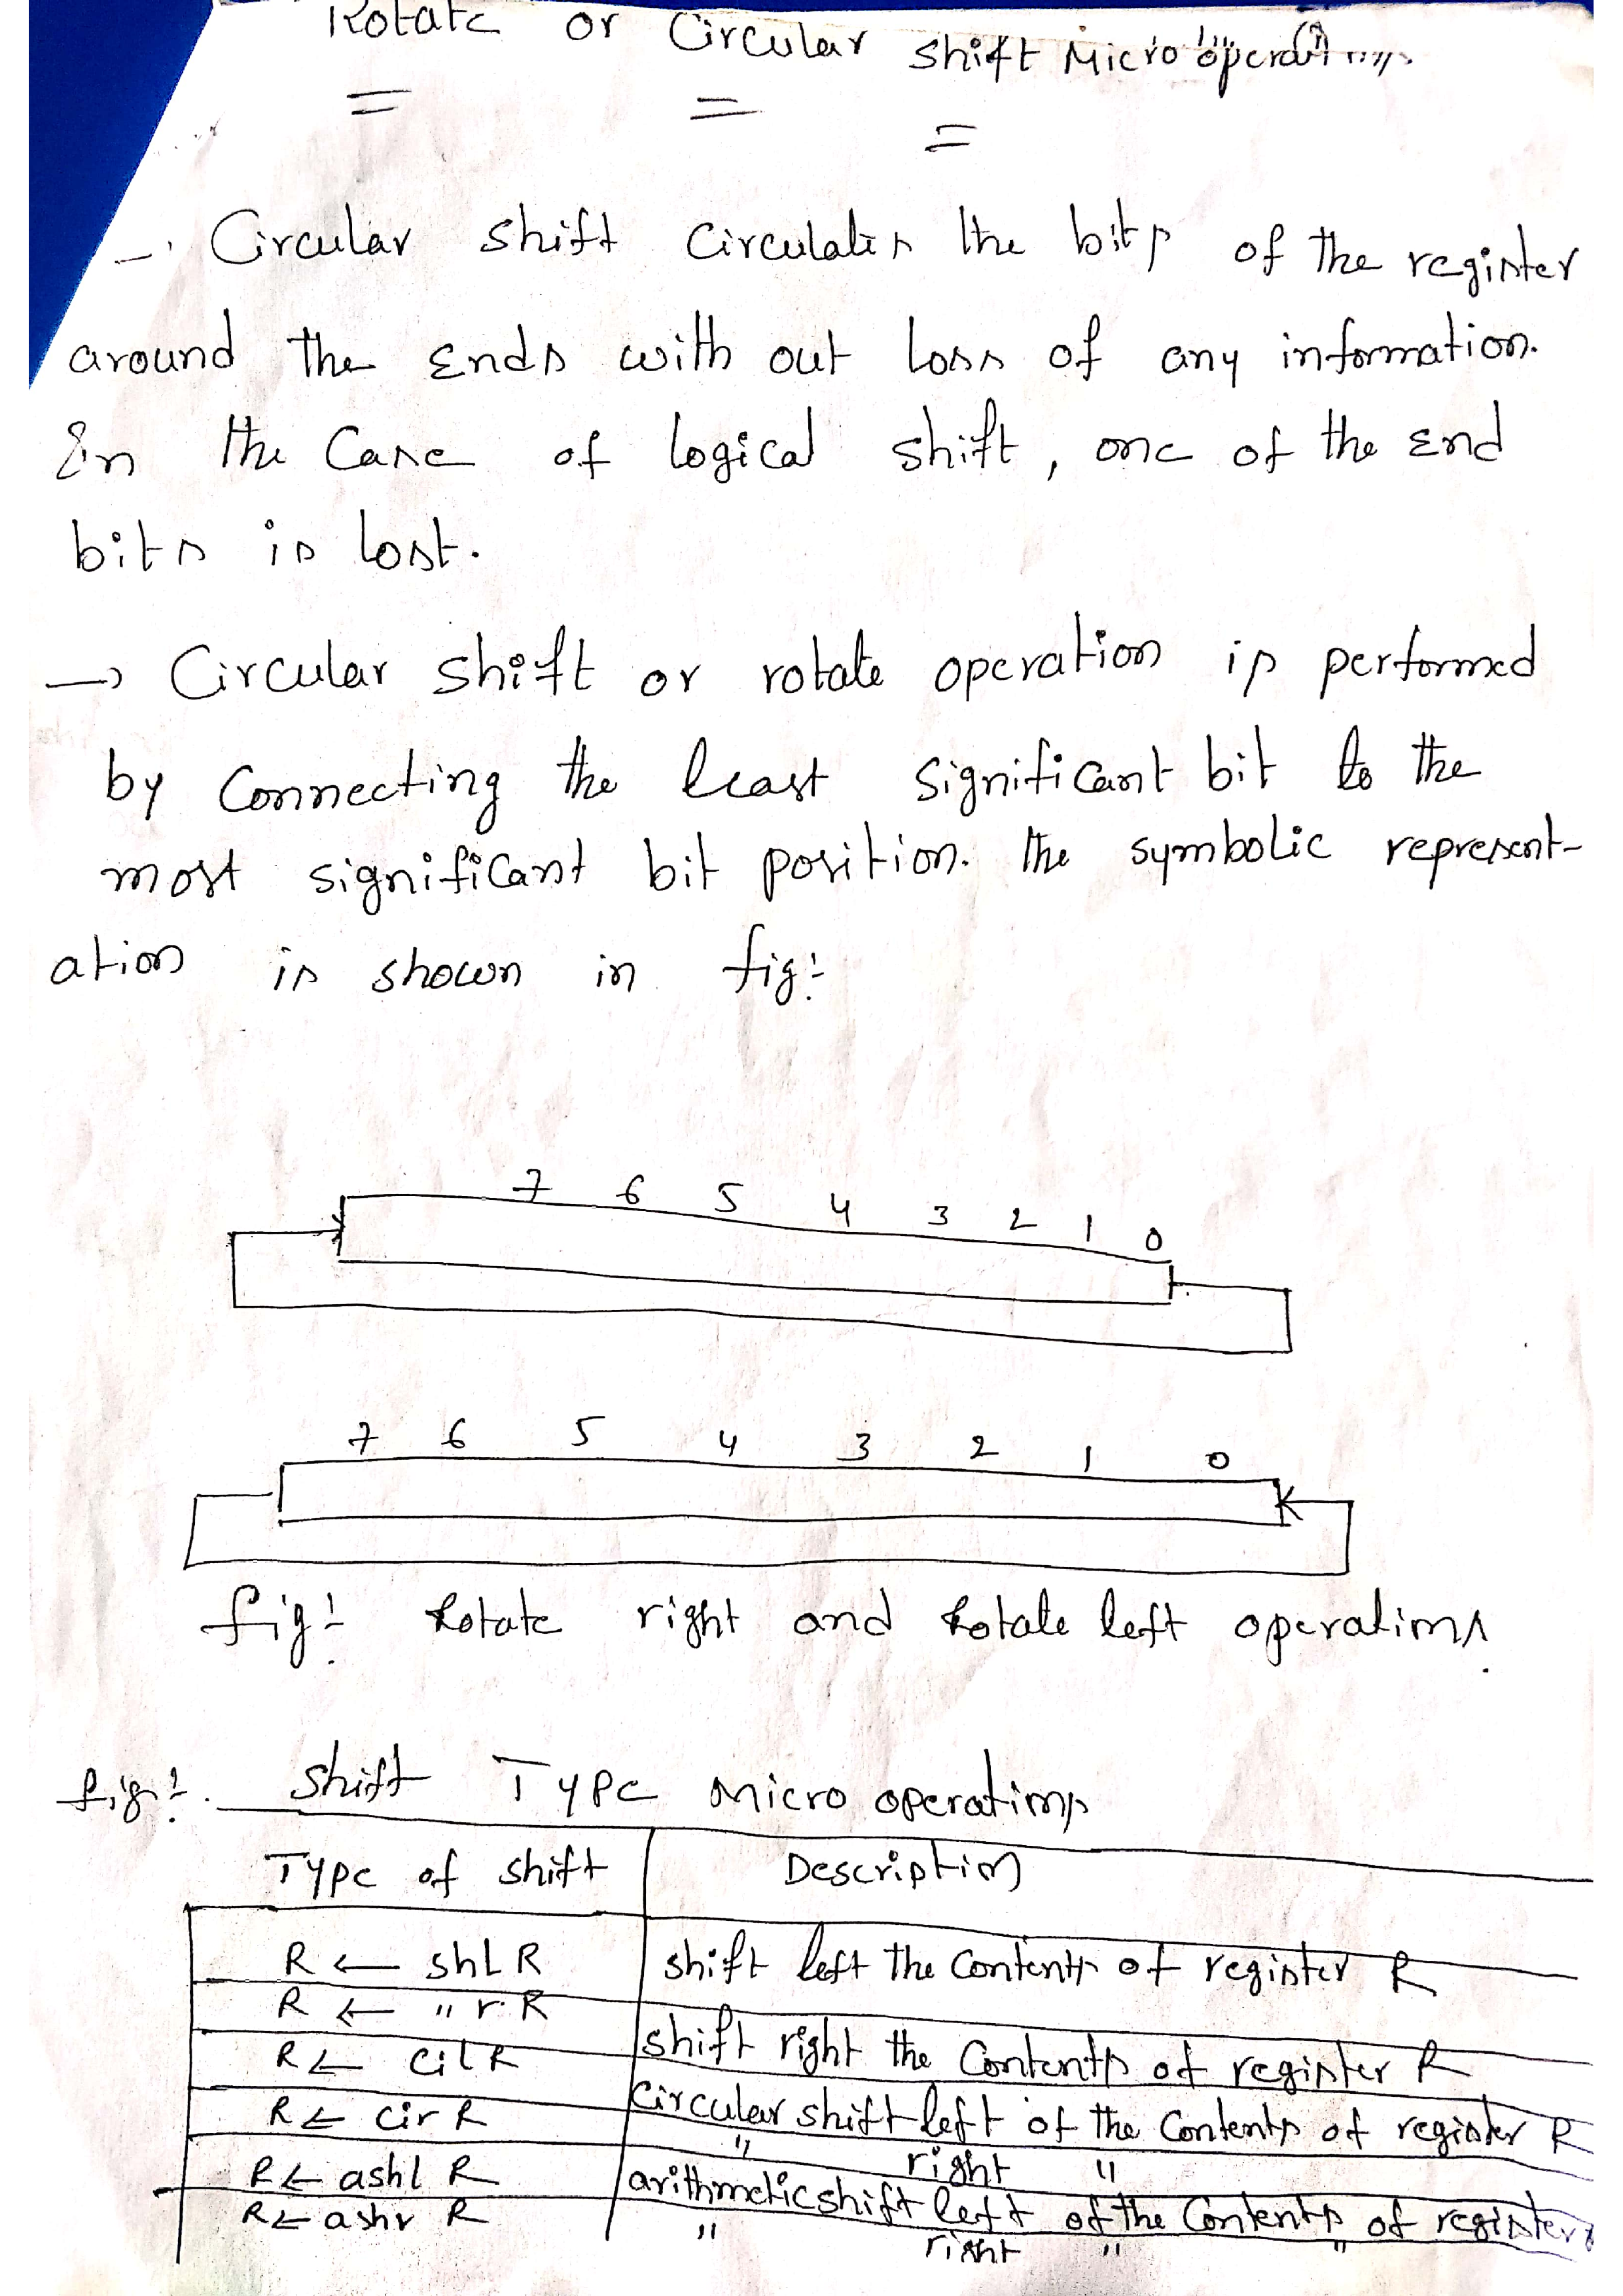 Rotate or Circular shift Micro operations
→ Circular shift circulates the bits of the register
around the Ends with out loss of any information.
In the Case of logical shift, one of the End
bits is lost.
→ Circular shift or rotate operation is performed
by Connecting the least significant bit to the
most significant bit position. the symbolic represent-
ation is shown in fig:
7 6 5 4 3 2 1 0
7 6 5 4 3 2 1 0
fig: Rotate right and Rotate left operations.
fig:. Shift Type micro operations
Type of shift Description
R ← shL R shift left the Contents of register R
R ← " r R shift right the Contents of register R
R ← cil R Circular shift left of the Contents of register R
R ← cir R " right "
R ← ashl R arithmetic shift left of the Contents of register
R ← ashr R " right " "